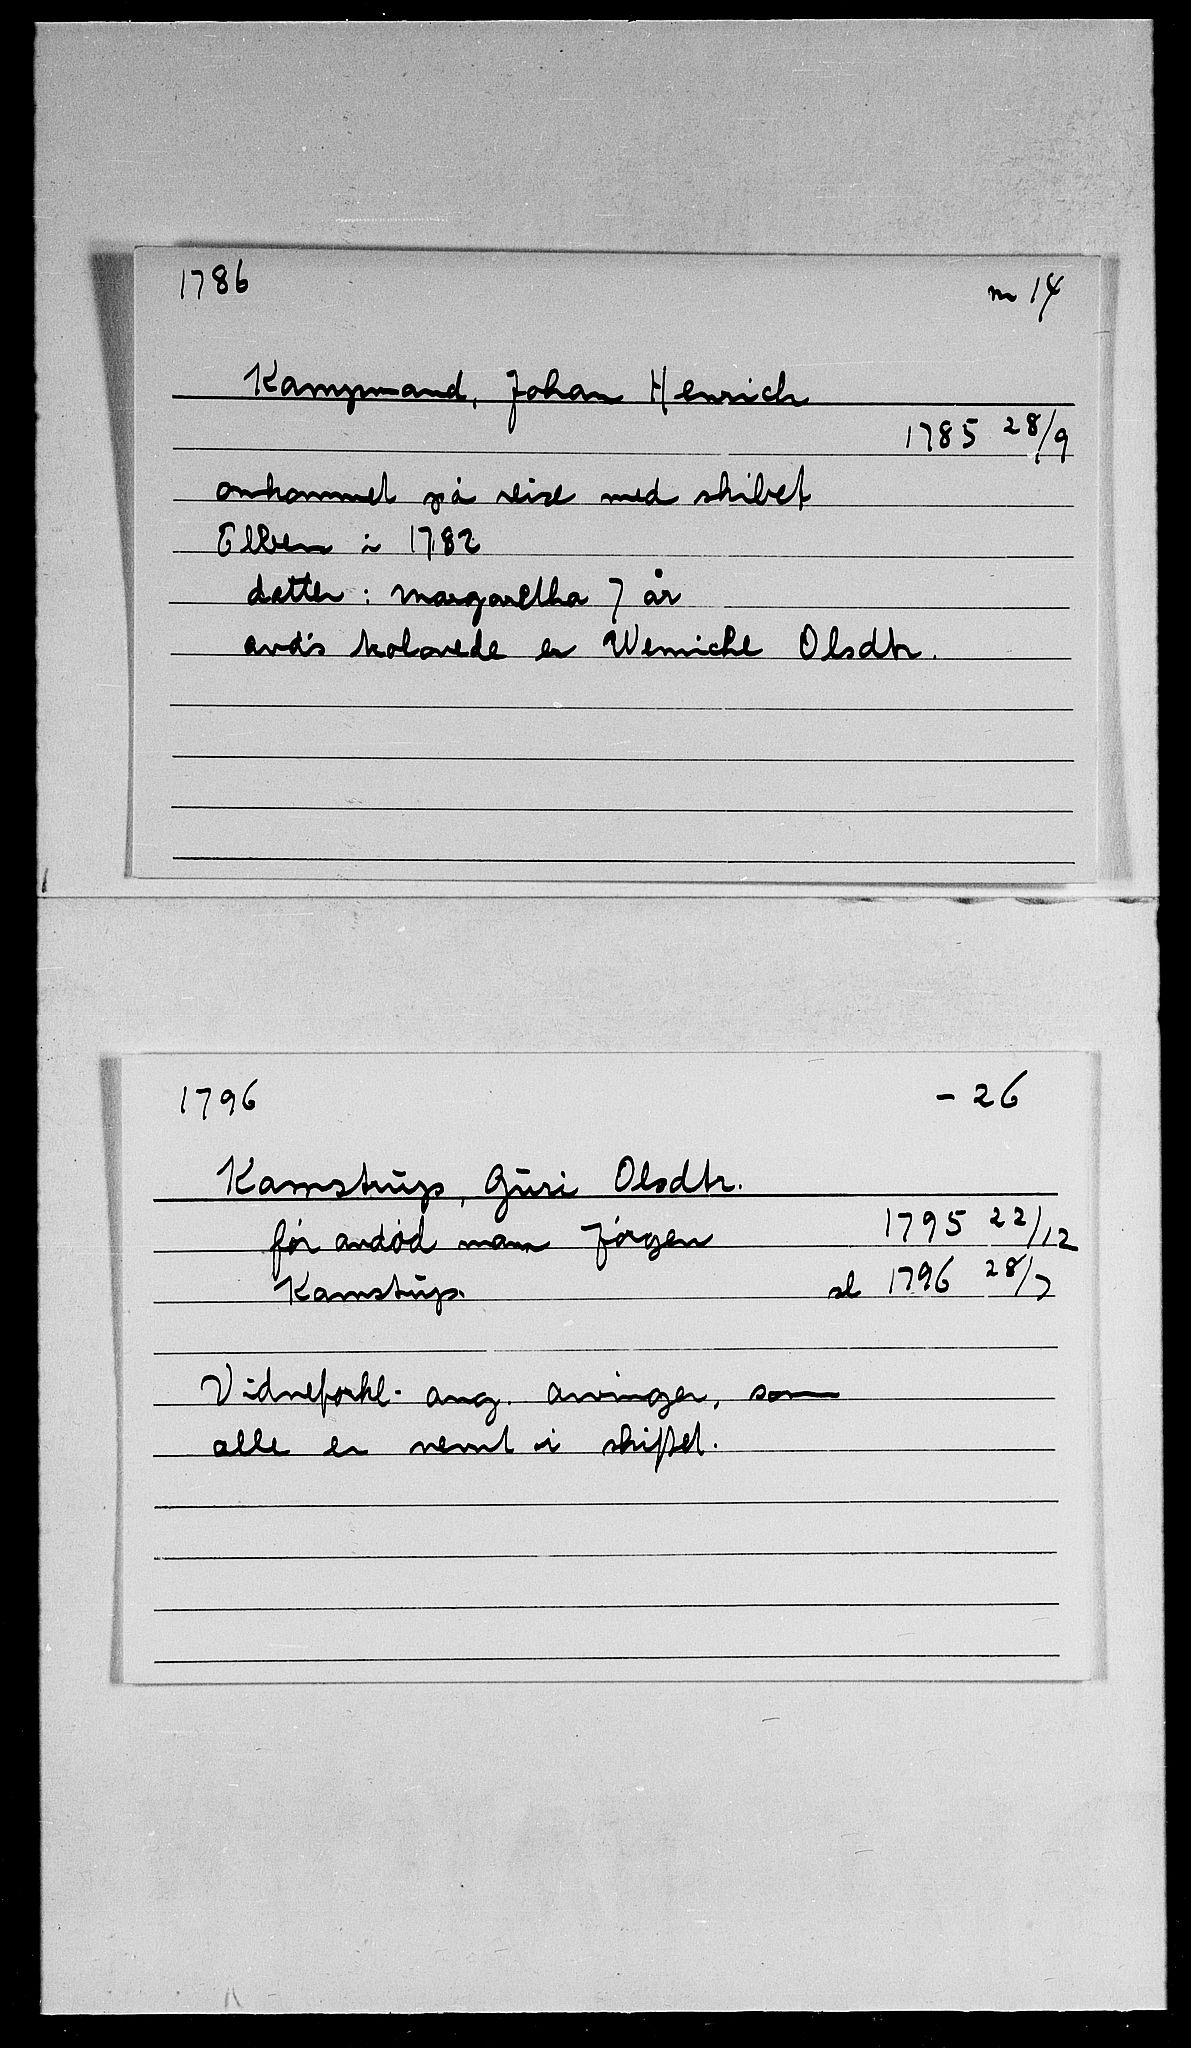 1786 m 14
Kampmand, Johan Henrich
1785 28/9
omkommet på reise med skibet
Elben i 1782
datter: Margaretha 7 år
avd's trolovede er Wenniche Olsdtr.
1796 - 26
Kamstrup, Guri Olsdtr.
før avdød mann Jørgen 1795 22/12
Kamstrup. sl 1796 28/7
Vidneforkl. ang. arvinger, som
alle er nevnt i skiftet.